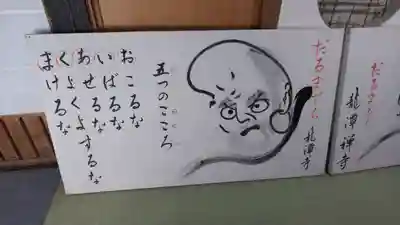 だるまさん
龍潭寺
五つのこころ
おこるな
いばるな
あせるな
くよくよするな
まけるな
だるまさ
龍潭禅寺